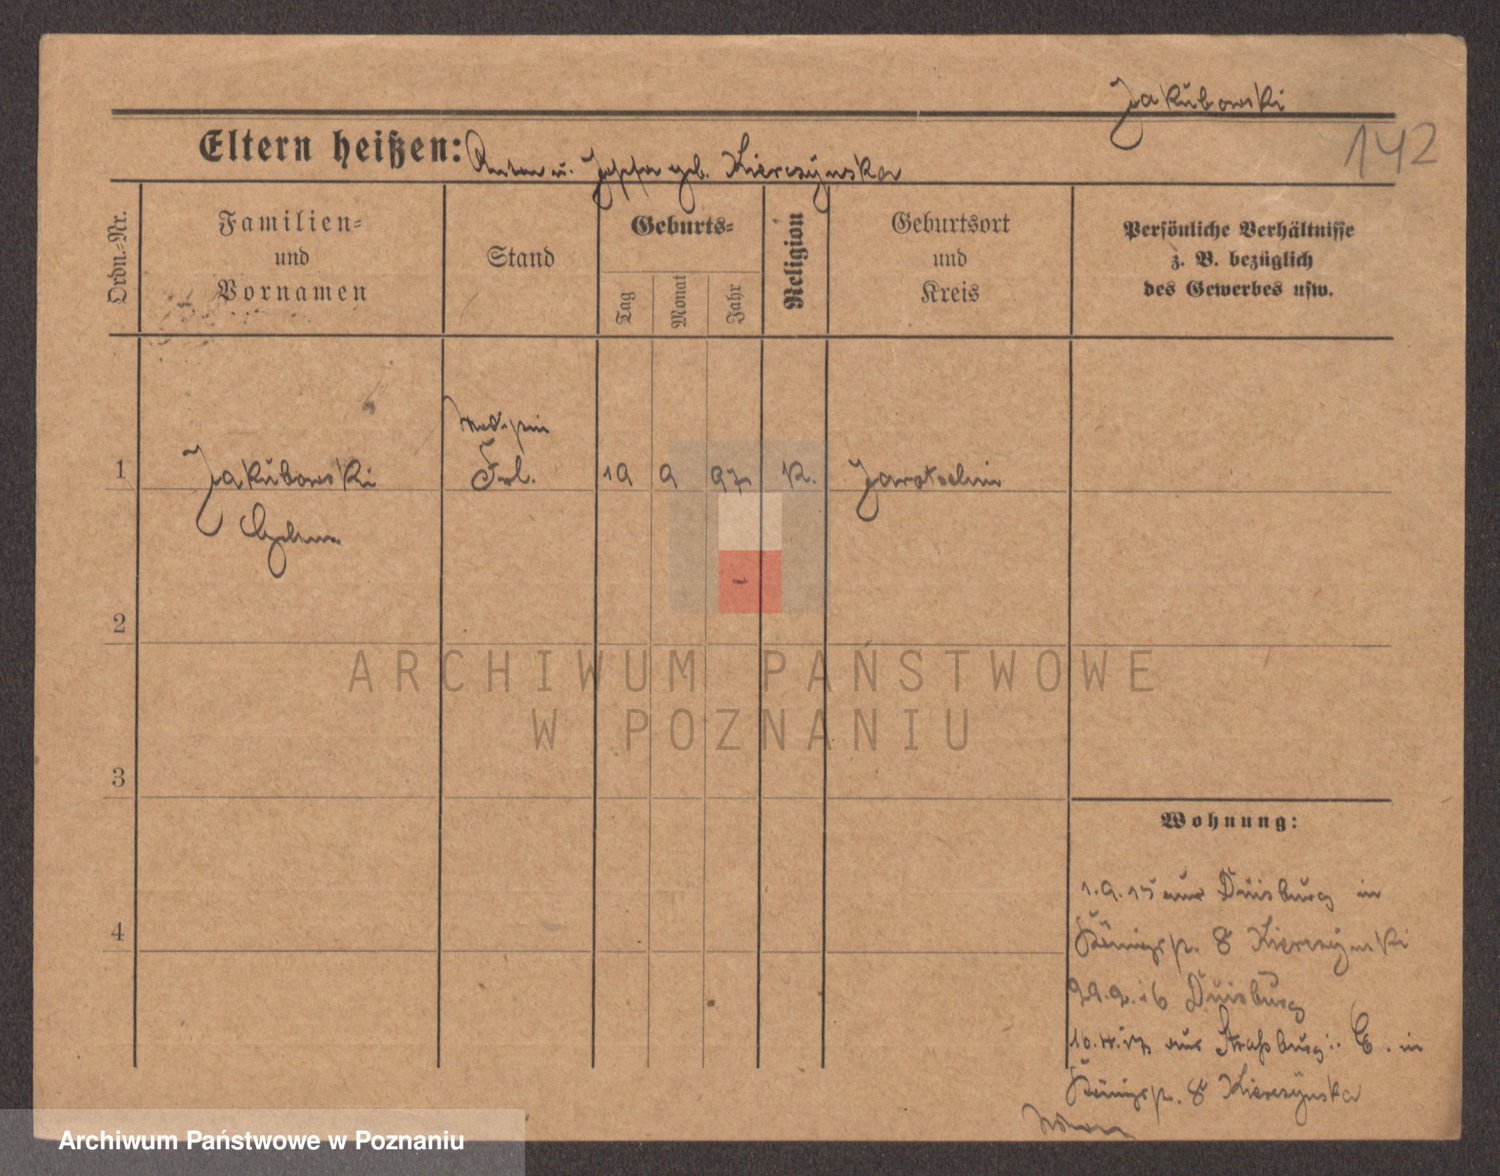 Jakubowski
142
Eltern heißen: Anton u. Josefa geb. Kierczynska
Ordn.-Nr.
Familien-
und
Vornamen
Stand
Geburts-
Tag
Monat
Jahr
Religion
Geburtsort
und
Kreis
Persönliche Verhältnisse
z. B. bezüglich
des Gewerbes usw.
1
Jakubowski
Frl.
19 9 97 K. Jarotschin
2
3
4
Wohnung:
1.9.15 aus Duisburg in
Königsp. 8 Kierczynski
Duisburg
aus Straßburg i. E. in
Königsp. 8 Kierczynska
ARCHIWUM PAŃSTWOWE
W POZNANIU
Archiwum Państwowe w Poznaniu